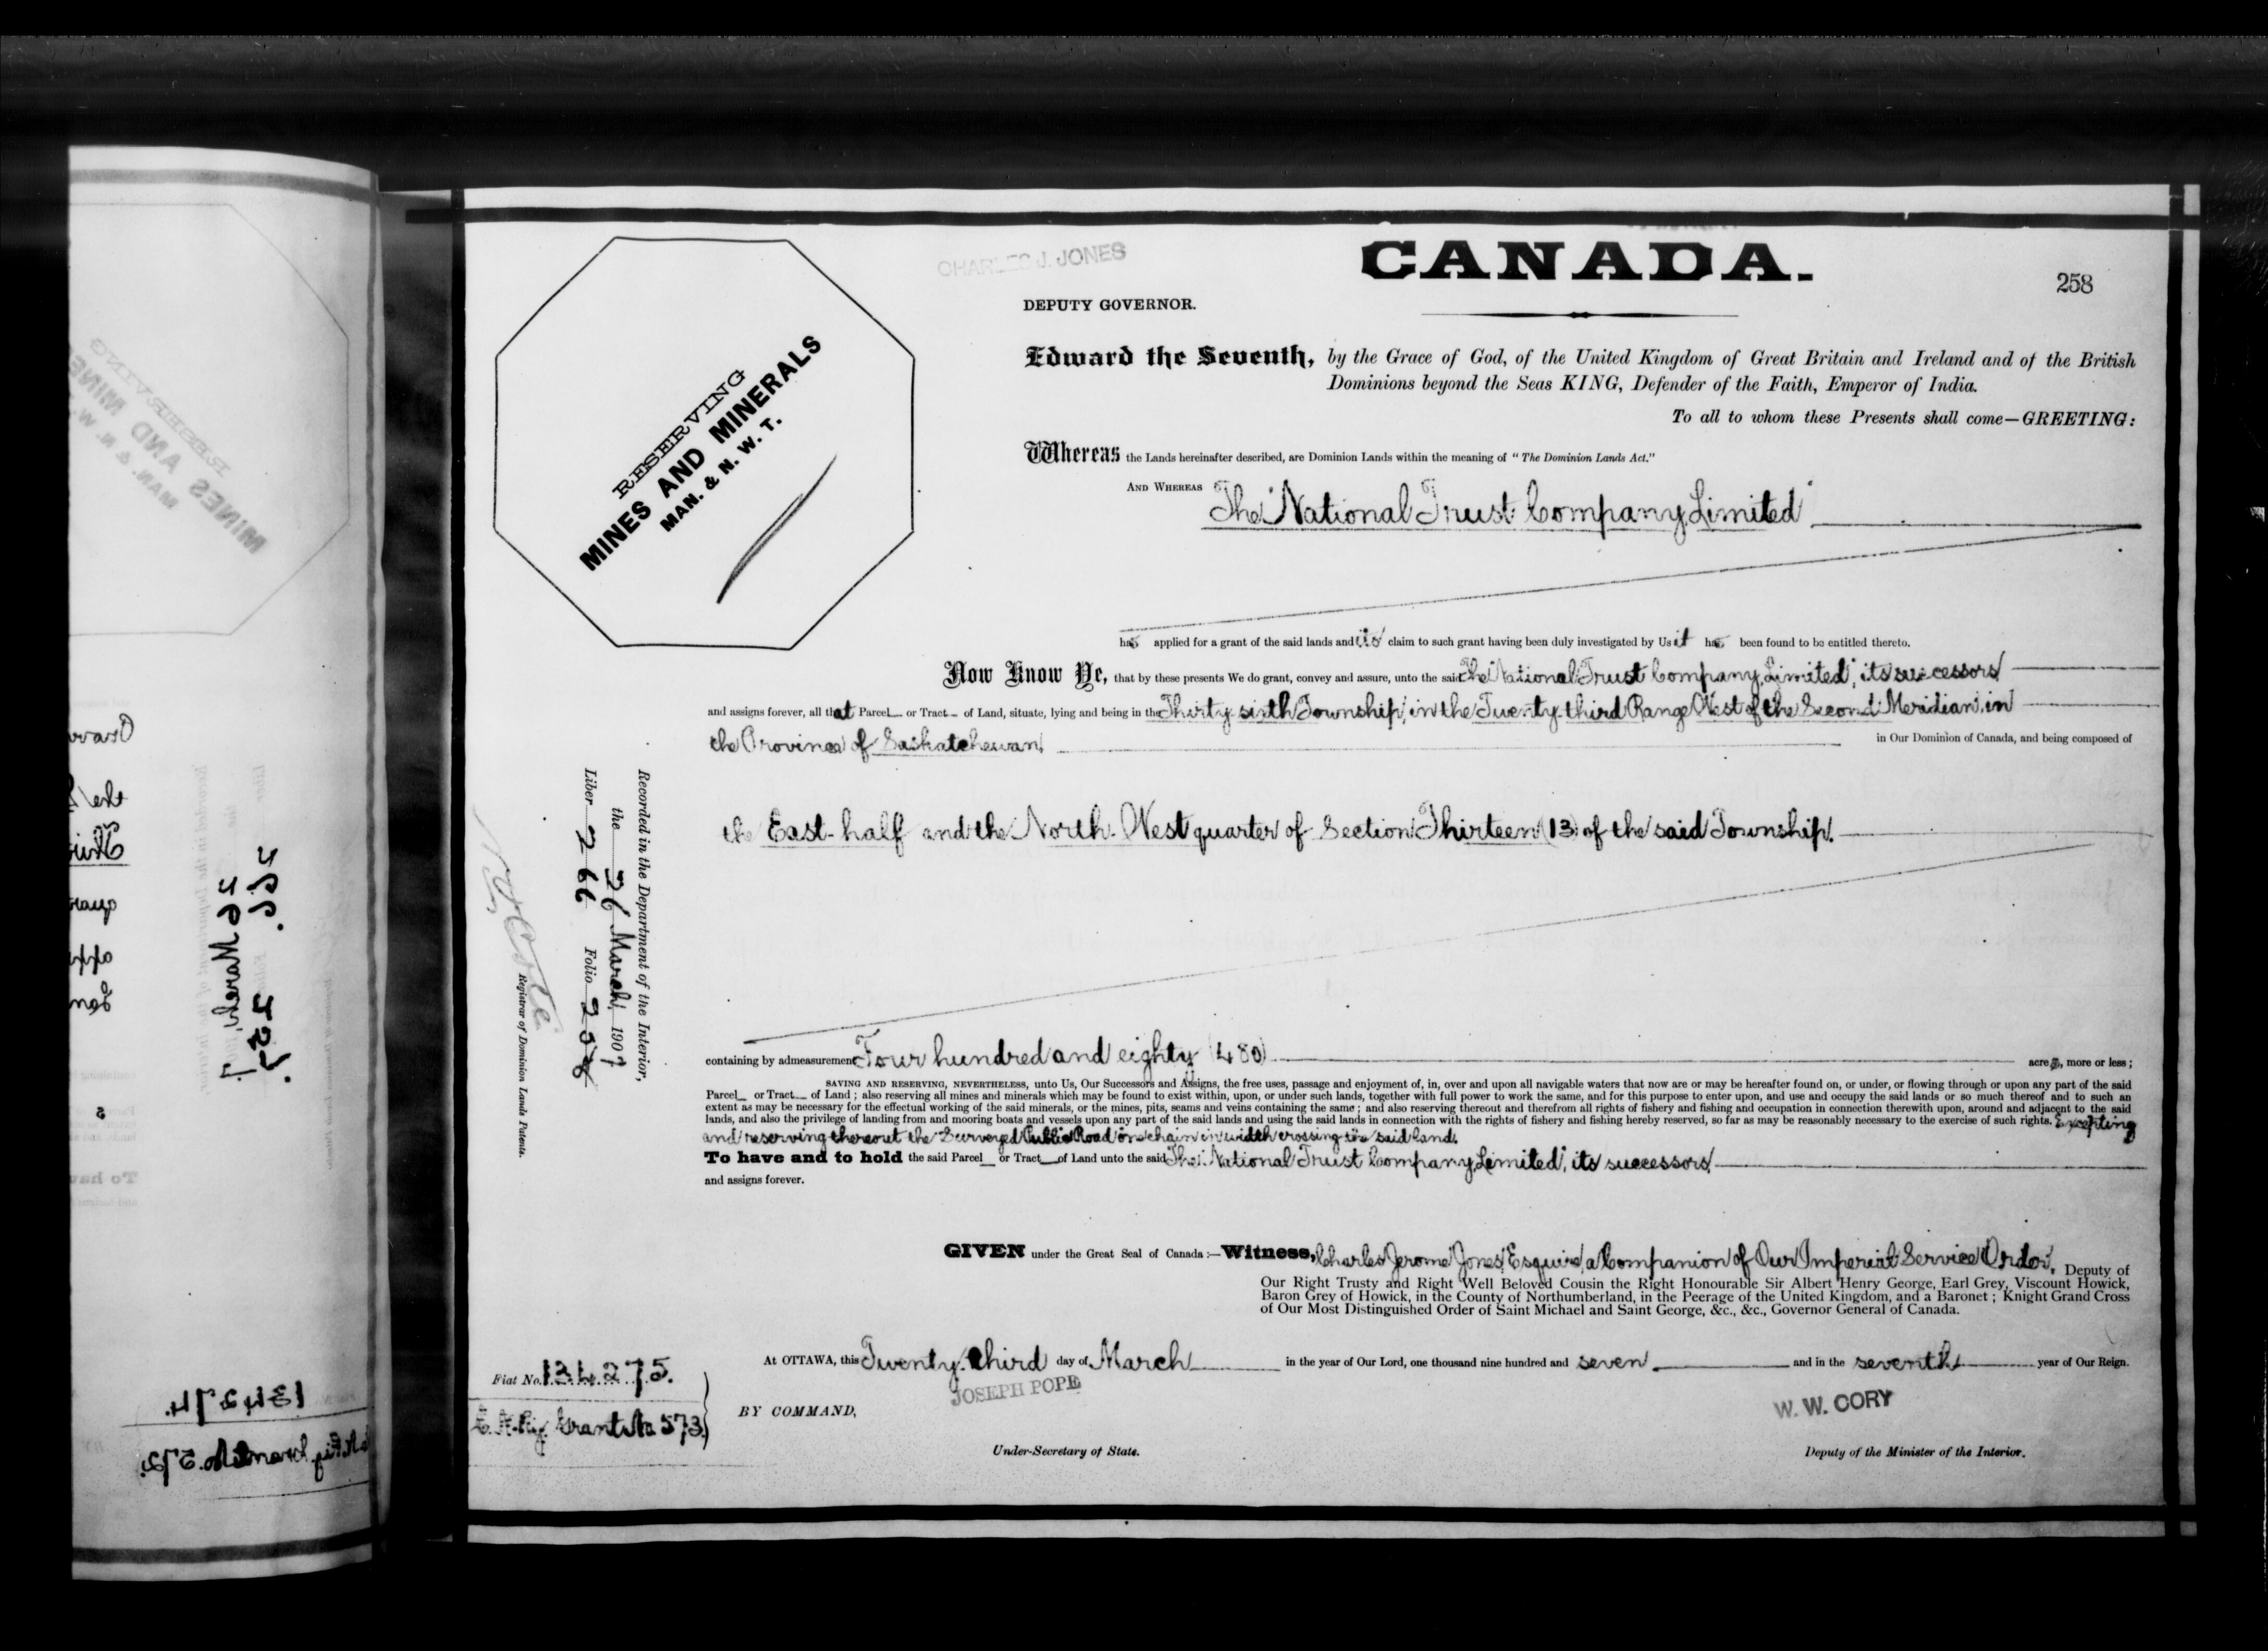 CHARLES J. JONES
CANADA.
258
DEPUTY GOVERNOR.
RESERVING
MINES AND MINERALS
MAN. & N. W. T.
Edward the Seventh, by the Grace of God, of the United Kingdom of Great Britain and Ireland and of the British
Dominions beyond the Seas KING, Defender of the Faith, Emperor of India.
To all to whom these Presents shall come—GREETING:
Whereas the Lands hereinafter described, are Dominion Lands within the meaning of "The Dominion Lands Act."
AND WHEREAS "The National Trust Company, Limited"
has applied for a grant of the said lands and its claim to such grant having been duly investigated by Us it has been found to be entitled thereto.
Now Know Ye, that by these presents We do grant, convey and assure, unto the said "The National Trust Company, Limited", its successors
and assigns forever, all that Parcel or Tract of Land, situate, lying and being in the Thirty sixth Township, in the Twenty-third Range West of the Second Meridian, in
the Province of Saskatchewan, in Our Dominion of Canada, and being composed of
the East-half and the North-West quarter of Section Thirteen (13) of the said Township.
Recorded in the Department of the Interior,
the 26 March, 1907
Liber 266 Folio 258
Registrar of Dominion Lands Patents.
containing by admeasurement Four hundred and eighty (480) acres, more or less;
SAVING AND RESERVING, NEVERTHELESS, unto Us, Our Successors and Assigns, the free uses, passage and enjoyment of, in, over and upon all navigable waters that now are or may be hereafter found on, or under, or flowing through or upon any part of the said
Parcel or Tract of Land; also reserving all mines and minerals which may be found to exist within, upon, or under such lands, together with full power to work the same, and for this purpose to enter upon, and use and occupy the said lands or so much thereof and to such an
extent as may be necessary for the effectual working of the said minerals, or the mines, pits, seams and veins containing the same; and also reserving thereout and therefrom all rights of fishery and fishing and occupation in connection therewith upon, around and adjacent to the said
lands, and also the privilege of landing from and mooring boats and vessels upon any part of the said lands and using the said lands in connection with the rights of fishery and fishing hereby reserved, so far as may be reasonably necessary to the exercise of such rights. Excepting
and reserving thereout the Surveyed Public Road one chain in width crossing the said land.
To have and to hold the said Parcel or Tract of Land unto the said "The National Trust Company, Limited", its successors
and assigns forever.
GIVEN under the Great Seal of Canada:—Witness, Charles Jerome Jones, Esquire, a Companion of Our Imperial Service Order, Deputy of
Our Right Trusty and Right Well Beloved Cousin the Right Honourable Sir Albert Henry George, Earl Grey, Viscount Howick,
Baron Grey of Howick, in the County of Northumberland, in the Peerage of the United Kingdom, and a Baronet; Knight Grand Cross
of Our Most Distinguished Order of Saint Michael and Saint George, &c., &c., Governor General of Canada.
At OTTAWA, this Twenty-third day of March in the year of Our Lord, one thousand nine hundred and seven and in the seventh year of Our Reign.
Fiat No. 134275.
Grant No 573.
JOSEPH POPE
W. W. CORY
BY COMMAND,
Under-Secretary of State.
Deputy of the Minister of the Interior.